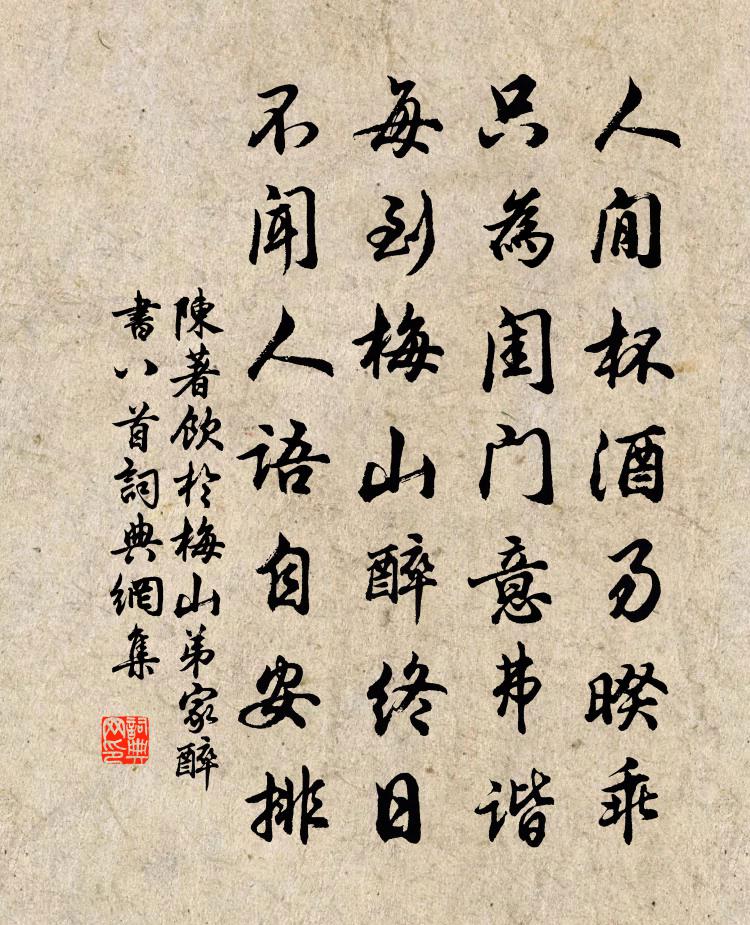 人間杯酒易暌乖
只為閨门意弗谐
每到梅山醉终日
不闻人语自安排
陳著飲於梅山弟家醉
書八首詞典網集
詞典网印